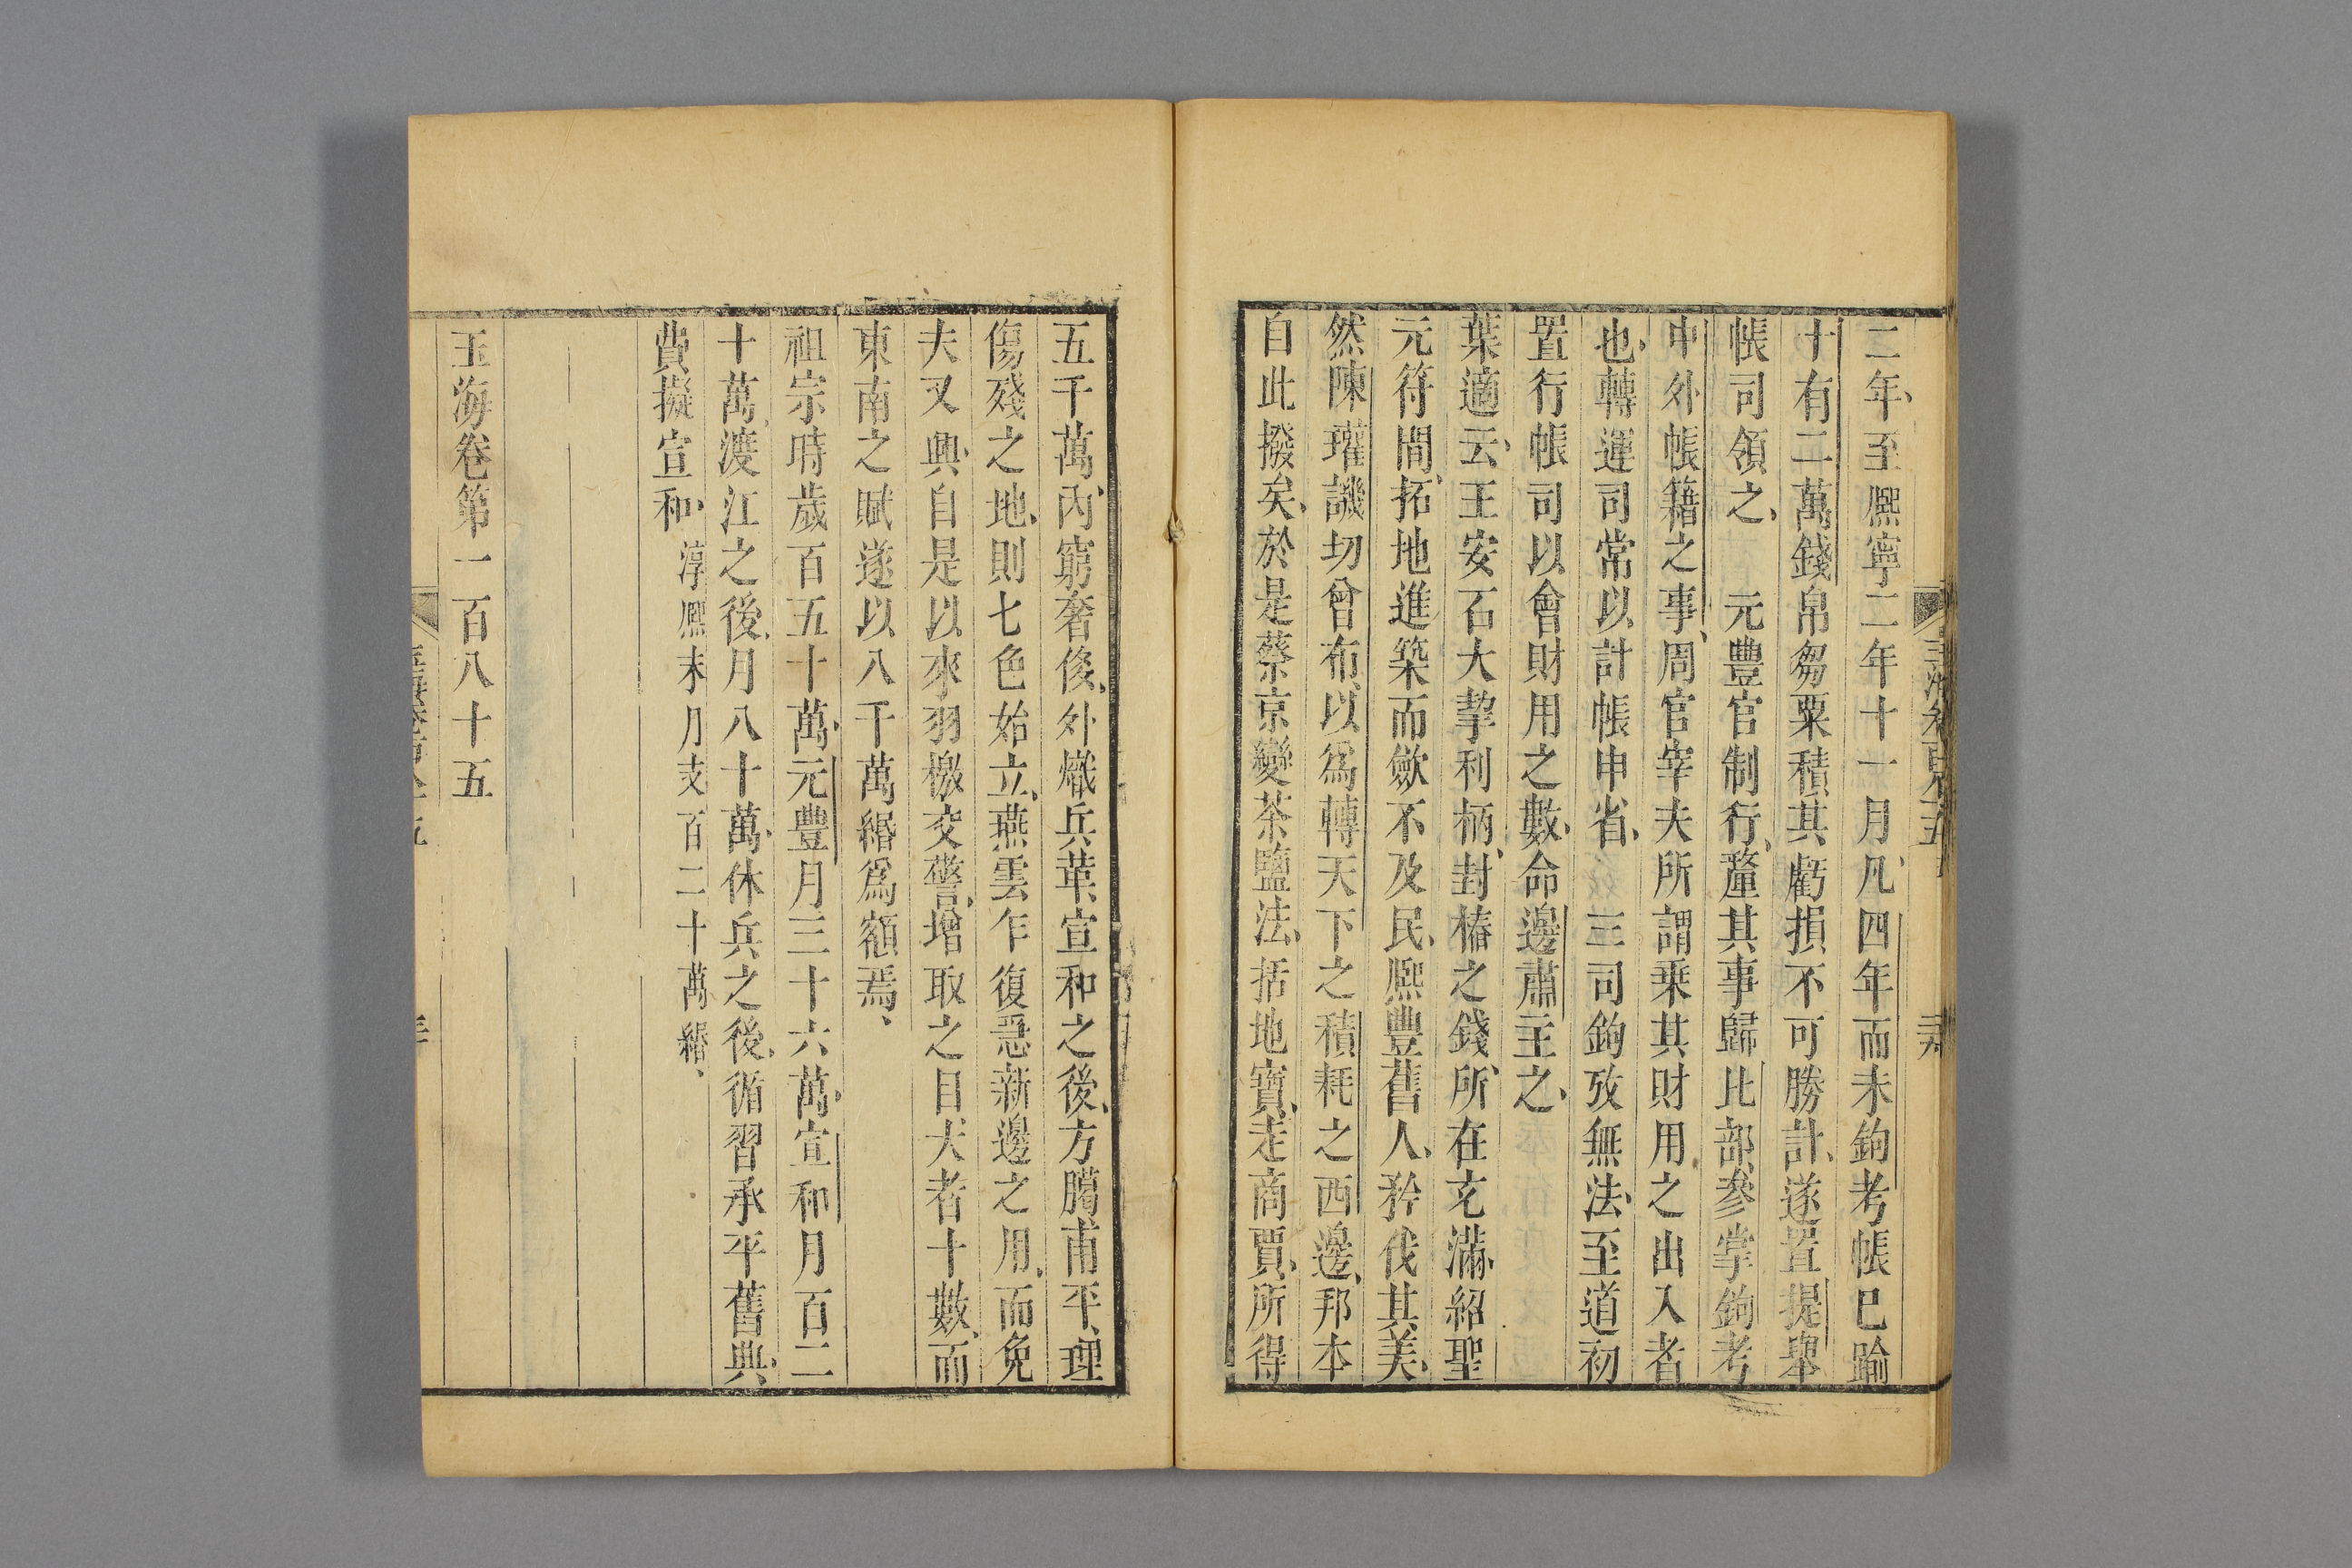 二年至熈寧二年十一月凡四年而未鉤考帳巳踰
十有二萬錢帛芻粟積其虧損不可勝計遂置提舉
帳司領之　元豐官制行釐其事歸比部參掌鉤考
中外帳籍之事周官宰夫所謂乗其財用之出入者
也轉運司常以計帳申省　三司鉤攷無法至道初
置行帳司以會財用之數命邊肅主之
葉適云王安石大挈利柄封樁之錢所在充滿紹聖
元符間拓地進築而歛不及民熈豐舊人矜伐其美
然陳瓘譏切曾布以爲轉天下之積耗之西邊邦本
自此撥矣於是蔡京變茶鹽法括地寳走商賈所得
五千萬内窮奢侈外熾兵革宣和之後方臘甫平理
傷殘之地則七色始立燕雲乍復急新邊之用而免
夫又興自是以來羽檄交警增取之目大者十數而
東南之賦遂以八千萬緡爲額焉
祖宗時歲百五十萬元豐月三十六萬宣和月百二
十萬渡江之後月八十萬休兵之後循習承平舊典
費擬宣和淳熈末月支百二十萬緡
玉海卷第一百八十五